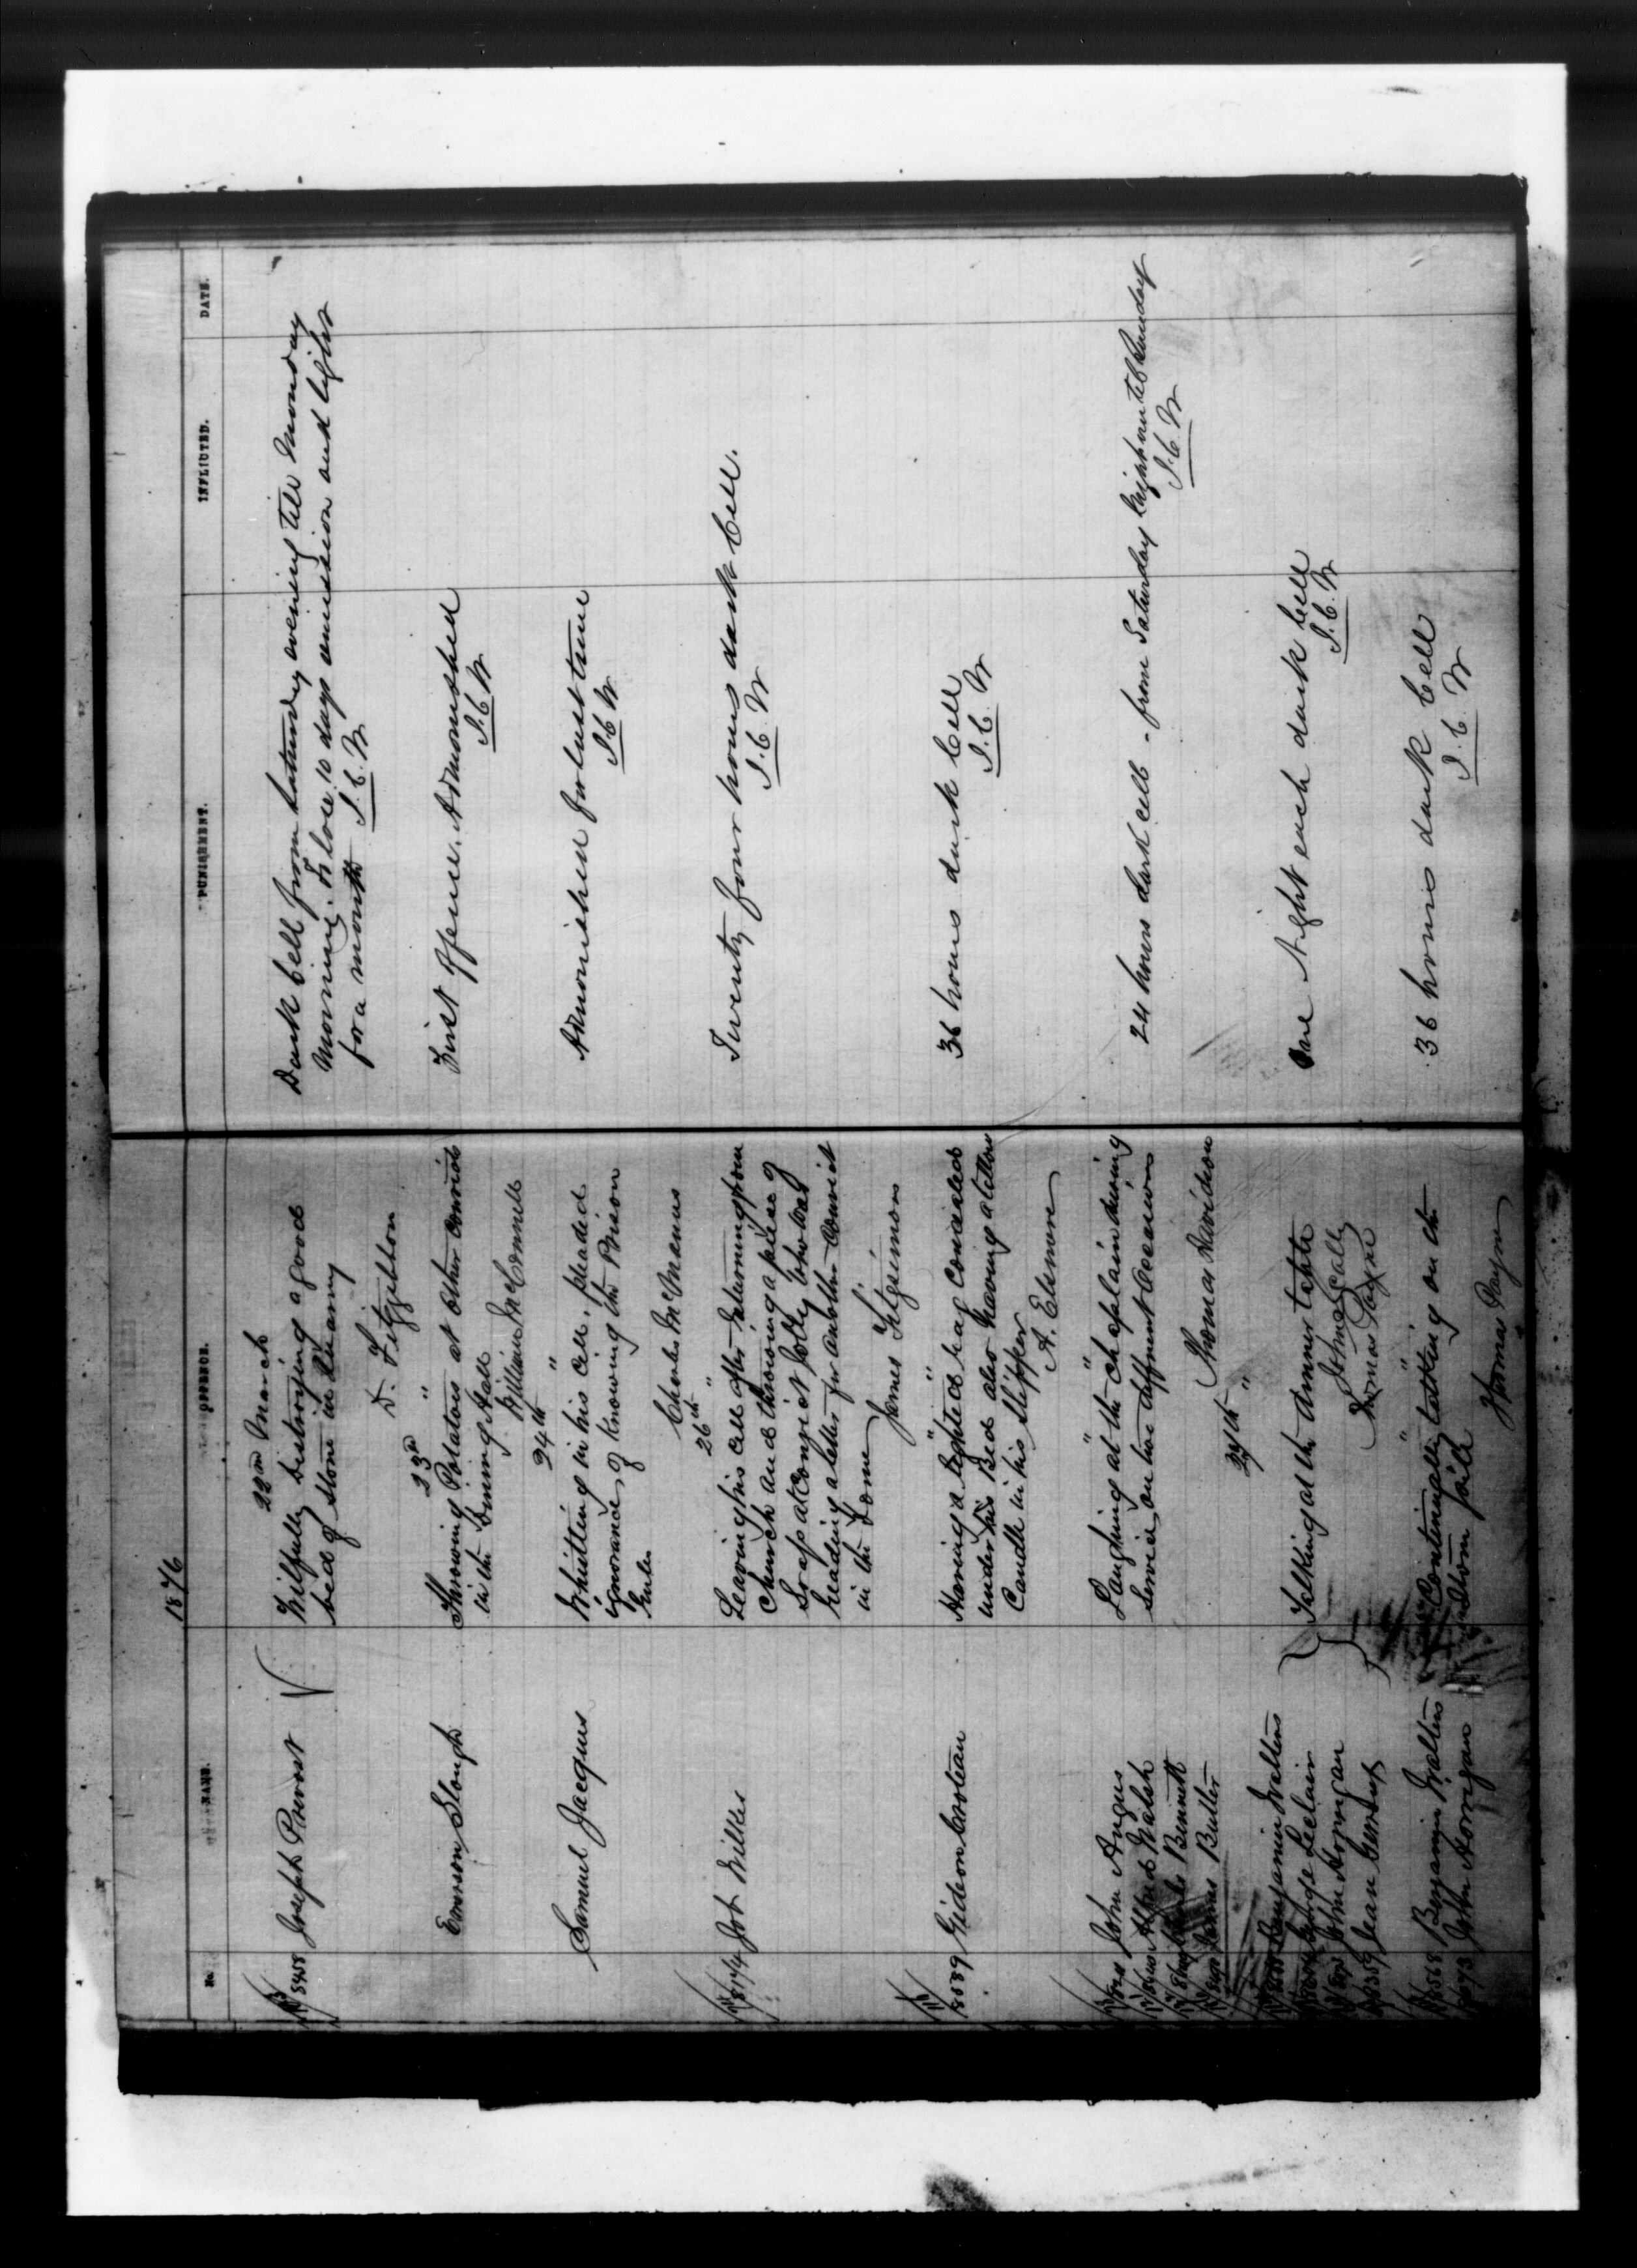 1876
No. NAME. OFFENCE. PUNISHMENT. INFLICTED. DATE.
22nd March
8458 Joseph Prevost
Wilfully destroying a good
bed of stone in Quarry
D. Fitzgibbon
Dark Cell from Saturday evening till Monday
Morning. To lose 10 days remission and light
for a month J. C. W
23rd "
Emerson Slough
Throwing Potatoes at other convicts
in the Dining Hall
William McConnell
First Offence. Admonished
J. C. W
24th "
Samuel Jacques
Whistling in his cell, pleaded
ignorance of knowing the Prison
rules
Charles McManus
Admonished for last time
J. C. W
26th "
Job Wilkes
Leaving his cell after returning from
Church and throwing a piece of
Soap at Convict Jolly who was
reading a letter for another Convict
in the Dome
James Fitzsimmons
Twenty four hours dark Cell.
J. C. W
" "
8089 Gideon Croteau
Having a lighted rag concealed
under his Bed also having a tallow
Candle in his Slipper
A. Elsmore
36 hours dark Cell
J. C. W
" "
John Angus
Alfred Walsh
Charles Bennett
James Butler
Laughing at the Chaplain during
service, on two different occasions
Thomas Davidson
24 hours dark cell - from Saturday Night until Sunday
J. C. W
27th "
Benjamin Walters
Leclair
John Horrigan
Jean Gervais
Talking at the dinner table
John Scally
Thomas Payne
One Night each dark Cell
J. C. W
" "
8568 Benjamin Walters
John Horrigan
Continually talking on the
Stone pile
Thomas Payne
36 hours dark Cell
J. C. W